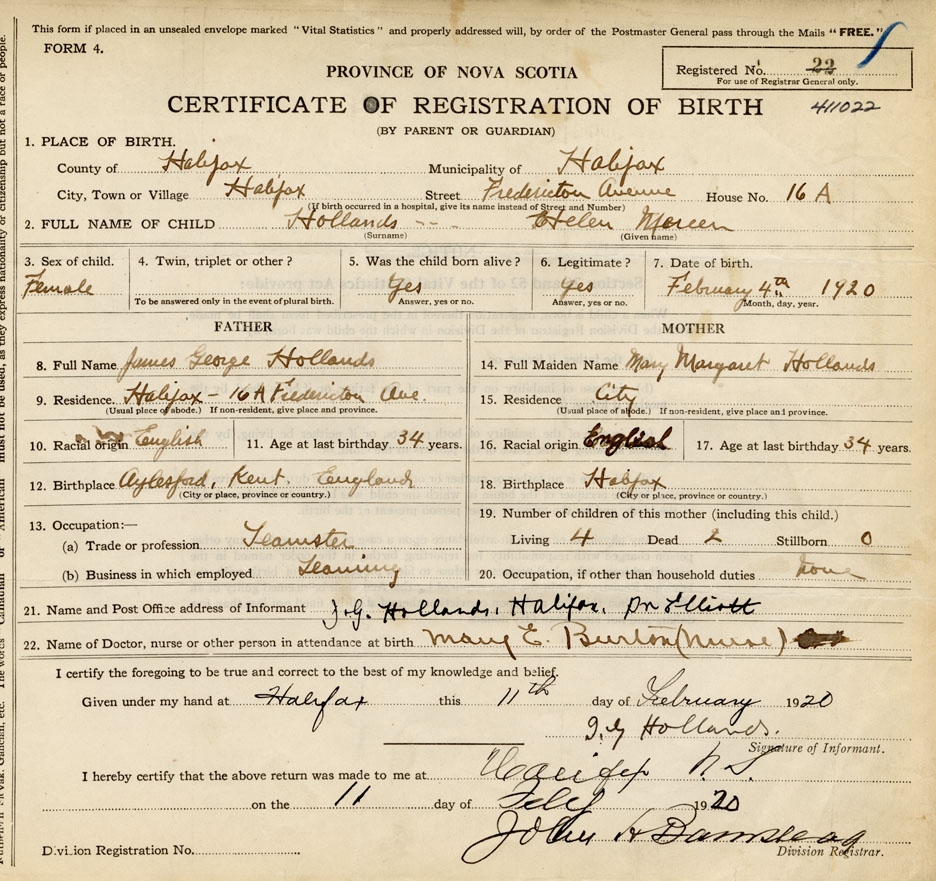 This form if placed in an unsealed envelope marked "Vital Statistics" and properly addressed will, by order of the Postmaster General pass through the Mails "FREE."
FORM 4.
Registered No. 22
For use of Registrar General only.
PROVINCE OF NOVA SCOTIA
CERTIFICATE OF REGISTRATION OF BIRTH 411022
(BY PARENT OR GUARDIAN)
1. PLACE OF BIRTH.
County of Halifax Municipality of Halifax
City, Town or Village Halifax Street Fredericton Avenue House No. 16 A
(If birth occurred in a hospital, give its name instead of Street and Number)
2. FULL NAME OF CHILD Hollands Helen
(Surname) (Given name)
3. Sex of child. 4. Twin, triplet or other? 5. Was the child born alive? 6. Legitimate? 7. Date of birth.
Female Yes Yes February 4th 1920
To be answered only in the event of plural birth. Answer, yes or no. Answer, yes or no. Month, day, year.
FATHER MOTHER
8. Full Name James George Hollands 14. Full Maiden Name Mary Margaret Hollands
9. Residence. Halifax - 16 A Fredericton Ave. 15. Residence City
(Usual place of abode.) If non-resident, give place and province. (Usual place of abode.) If non-resident, give place and province.
10. Racial origin English 11. Age at last birthday 34 years. 16. Racial origin English 17. Age at last birthday 34 years.
12. Birthplace Aylesford, Kent. England 18. Birthplace Halifax
(City or place, province or country.) (City or place, province or country.)
13. Occupation:— 19. Number of children of this mother (including this child.)
(a) Trade or profession Teamster Living 4 Dead 2 Stillborn 0
(b) Business in which employed Teaming 20. Occupation, if other than household duties none
21. Name and Post Office address of Informant J.G. Hollands, Halifax, Dr Elliott
22. Name of Doctor, nurse or other person in attendance at birth Mary E. Burton (Nurse)
I certify the foregoing to be true and correct to the best of my knowledge and belief.
Given under my hand at Halifax this 11th day of February 1920
J.G Hollands.
Signature of Informant.
I hereby certify that the above return was made to me at Halifax N.S.
on the 11 day of Feby 1920
John A
Division Registrar No.
Division Registrar.